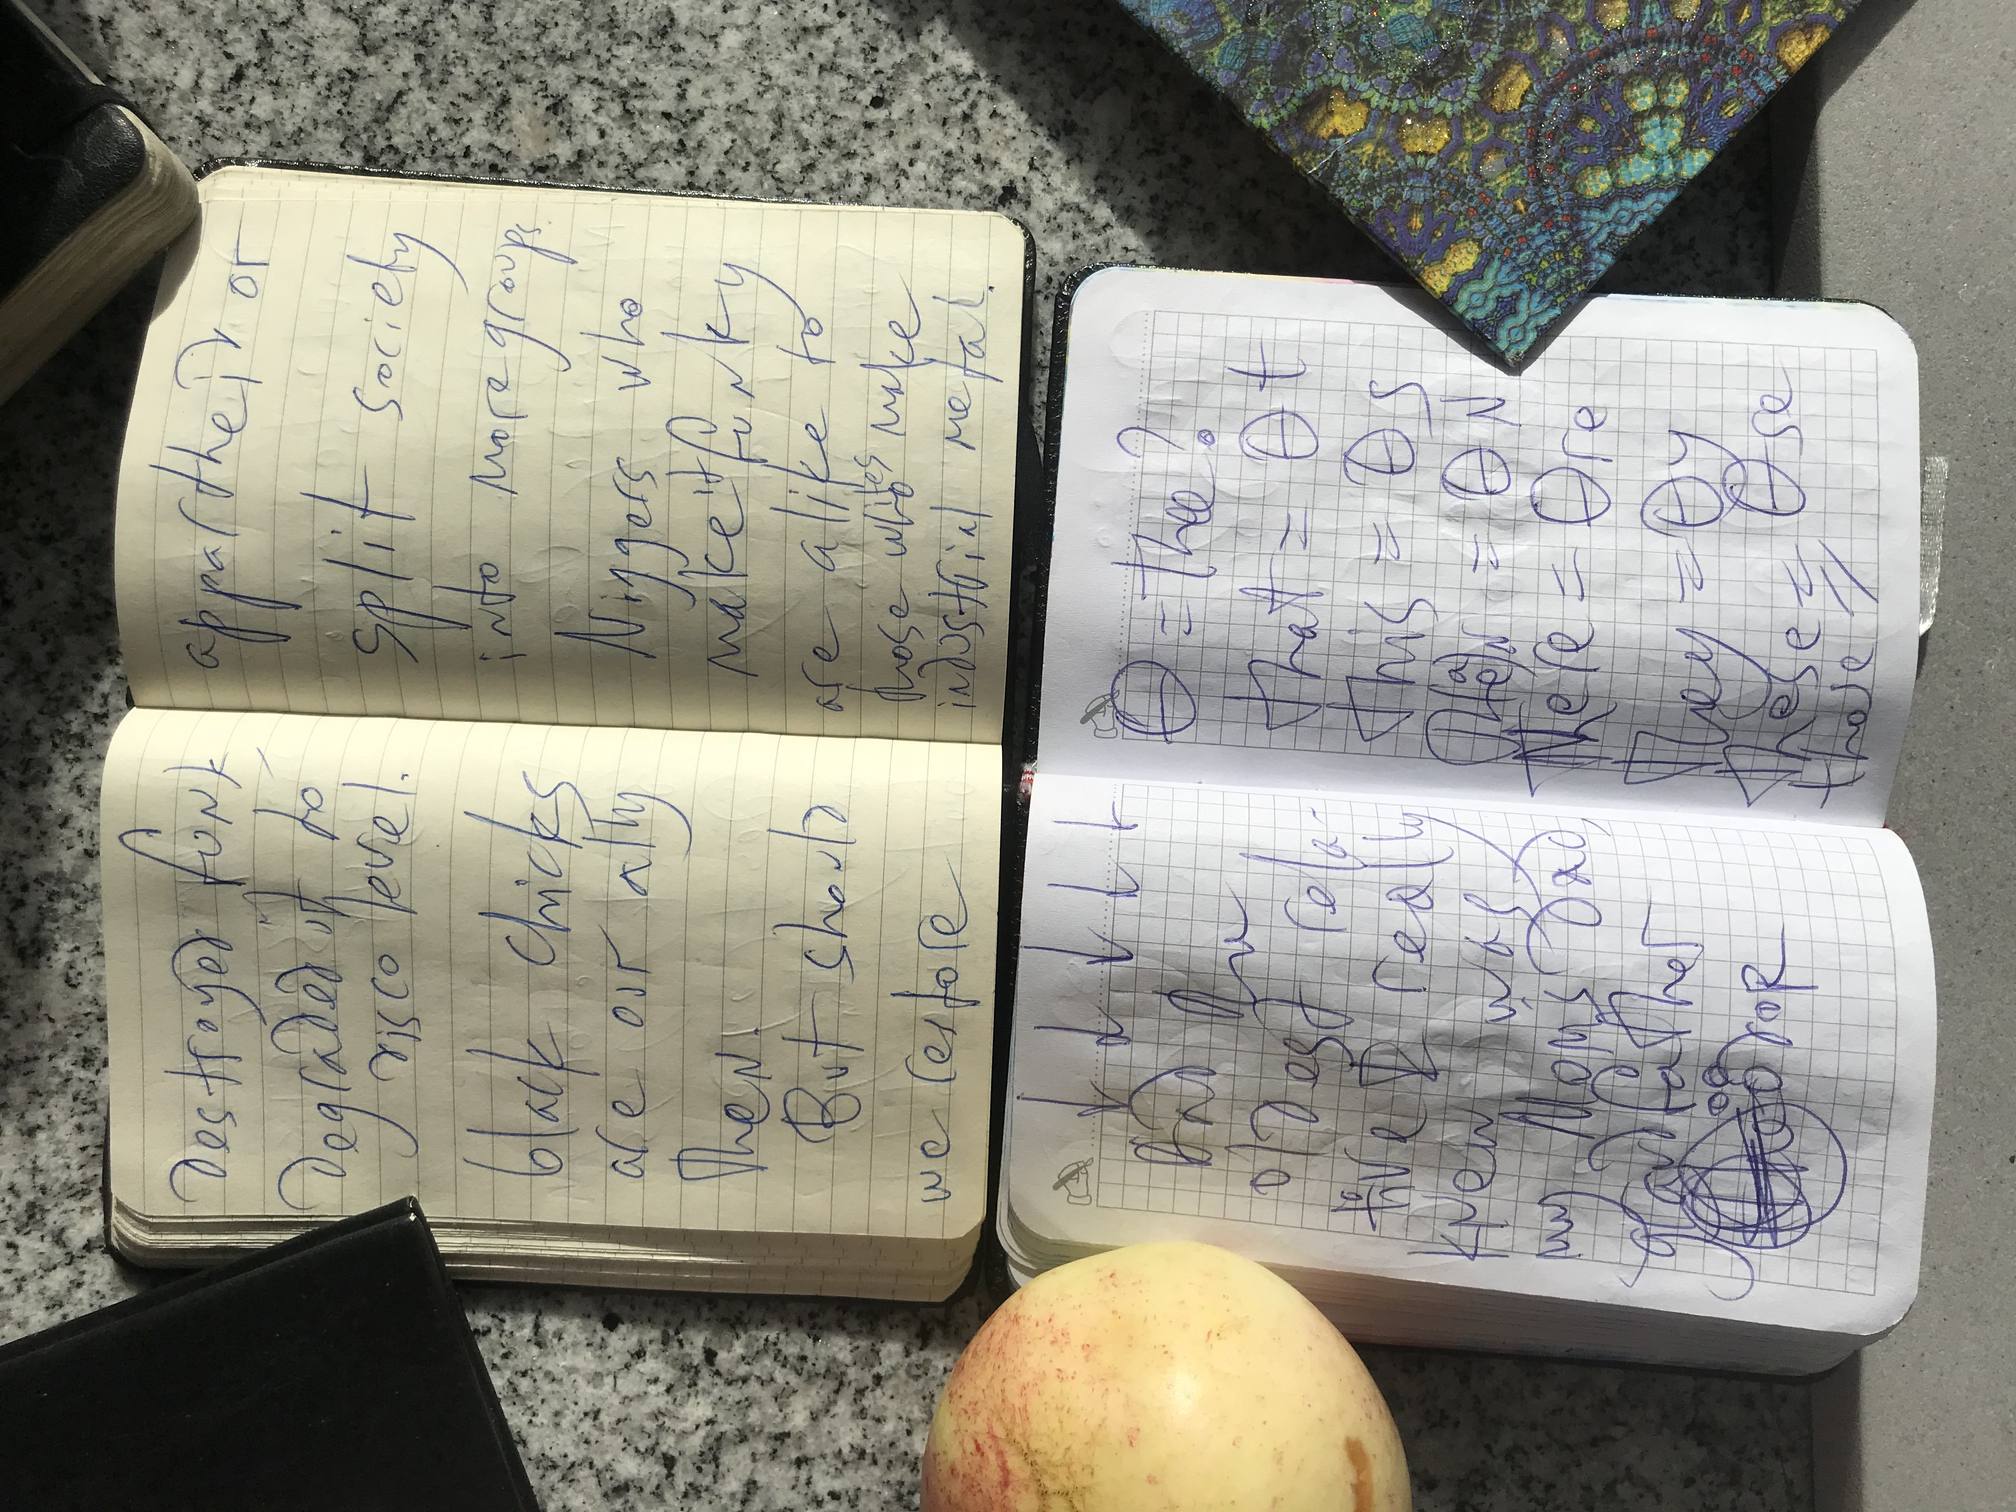 destroyed funk,
degraded it to
disco level.
black chicks
are our ally
then.
But should
we restore
apartheid or
split society
into more groups.
Niggers who
make it funky
are alike to
those whites who make
industrial metal.
And my
oldest rela-
tive I really
knew was
my Mom's Dad,
grand father
θ = the?
that = θt
this = θis
than = θN
there = θre
they = θy
these = θse
those = //